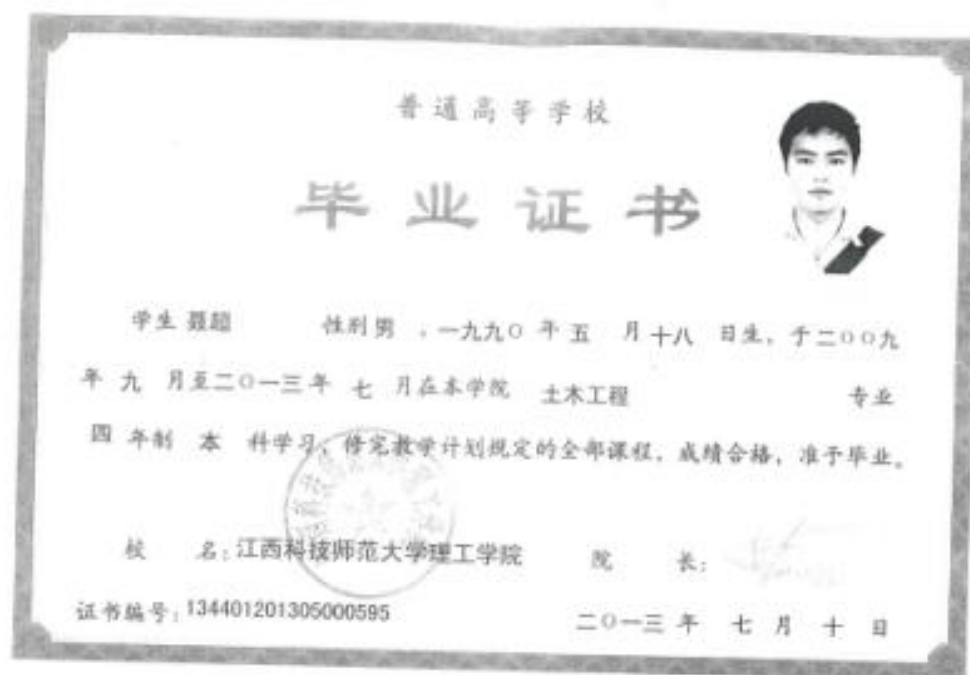 普通高等学校
毕业证书
学生 聂超 性别 男 ，一九九〇 年 五 月 十八 日生，于二〇〇九
年 九 月至二〇一三年 七 月在本学院 土木工程 专业
四 年制 本 科学习，修完教学计划规定的全部课程，成绩合格，准予毕业。
校 名：江西科技师范大学理工学院 院 长：
证书编号：134401201305000595 二〇一三 年 七 月 十 日